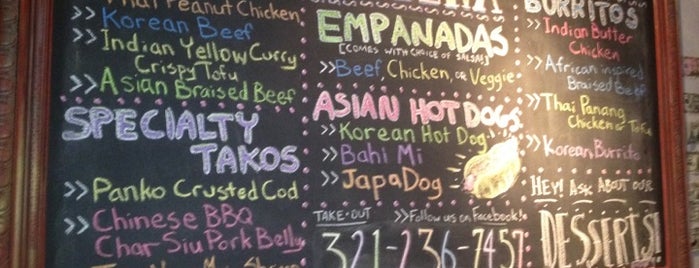 Thai Peanut Chicken
>> Korean Beef
>> Indian Yellow Curry
Crispy Tofu
>> Asian Braised Beef
SPECIALTY
TAKOS
>> Panko Crusted Cod
>> Chinese BBQ
Char Siu Pork Belly
EMPANADAS
[COMES WITH CHOICE OF SALSA!]
>> Beef, Chicken, OR Veggie
ASIAN HOT DOGS
>> Korean Hot Dog
>> Bahi Mi
>> JapaDog
TAKE-OUT >> Follow us on Facebook!
321-236-7457
BURRITOS
>> Indian Butter
Chicken
>> African inspired
Braised Beef
>> Thai Panang
Chicken or Tofu
>> Korean Burrito
HEY! ASK ABOUT OUR
DESSERTS!